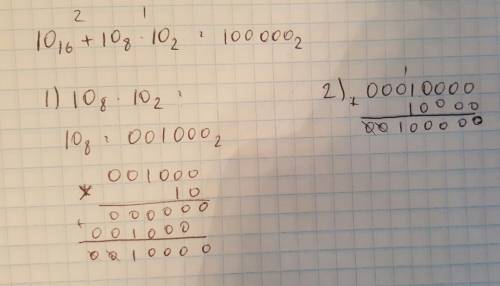 2 1
10₁₆ + 10₈ · 10₂ = 100000₂
1) 10₈ · 10₂ =
10₈ = 001000₂
001000
× 10
000000
+ 001000
0010000
2) 00010000
+ 10000
00100000